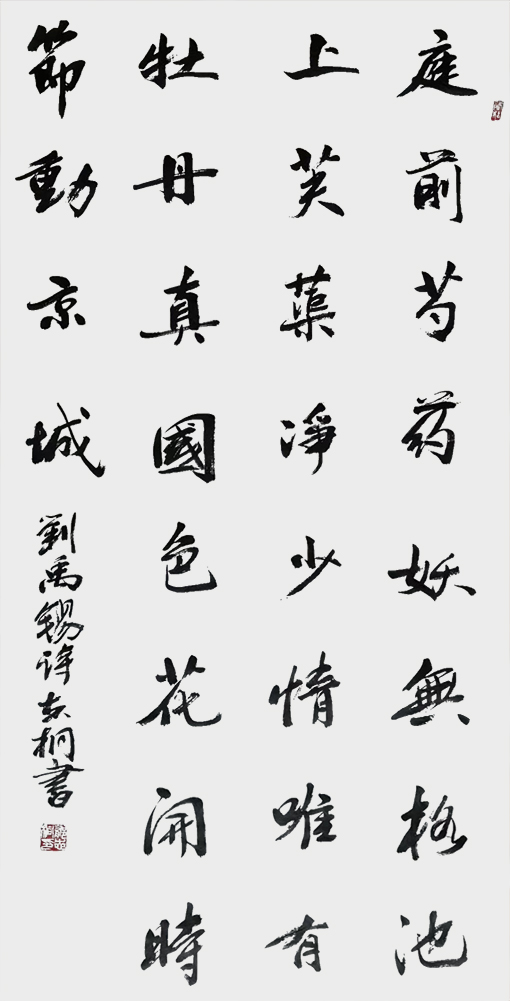 庭前芍药妖無格池
上芙蕖凈少情唯有
牡丹真國色花開時
節動京城
劉禹錫詩志桐書